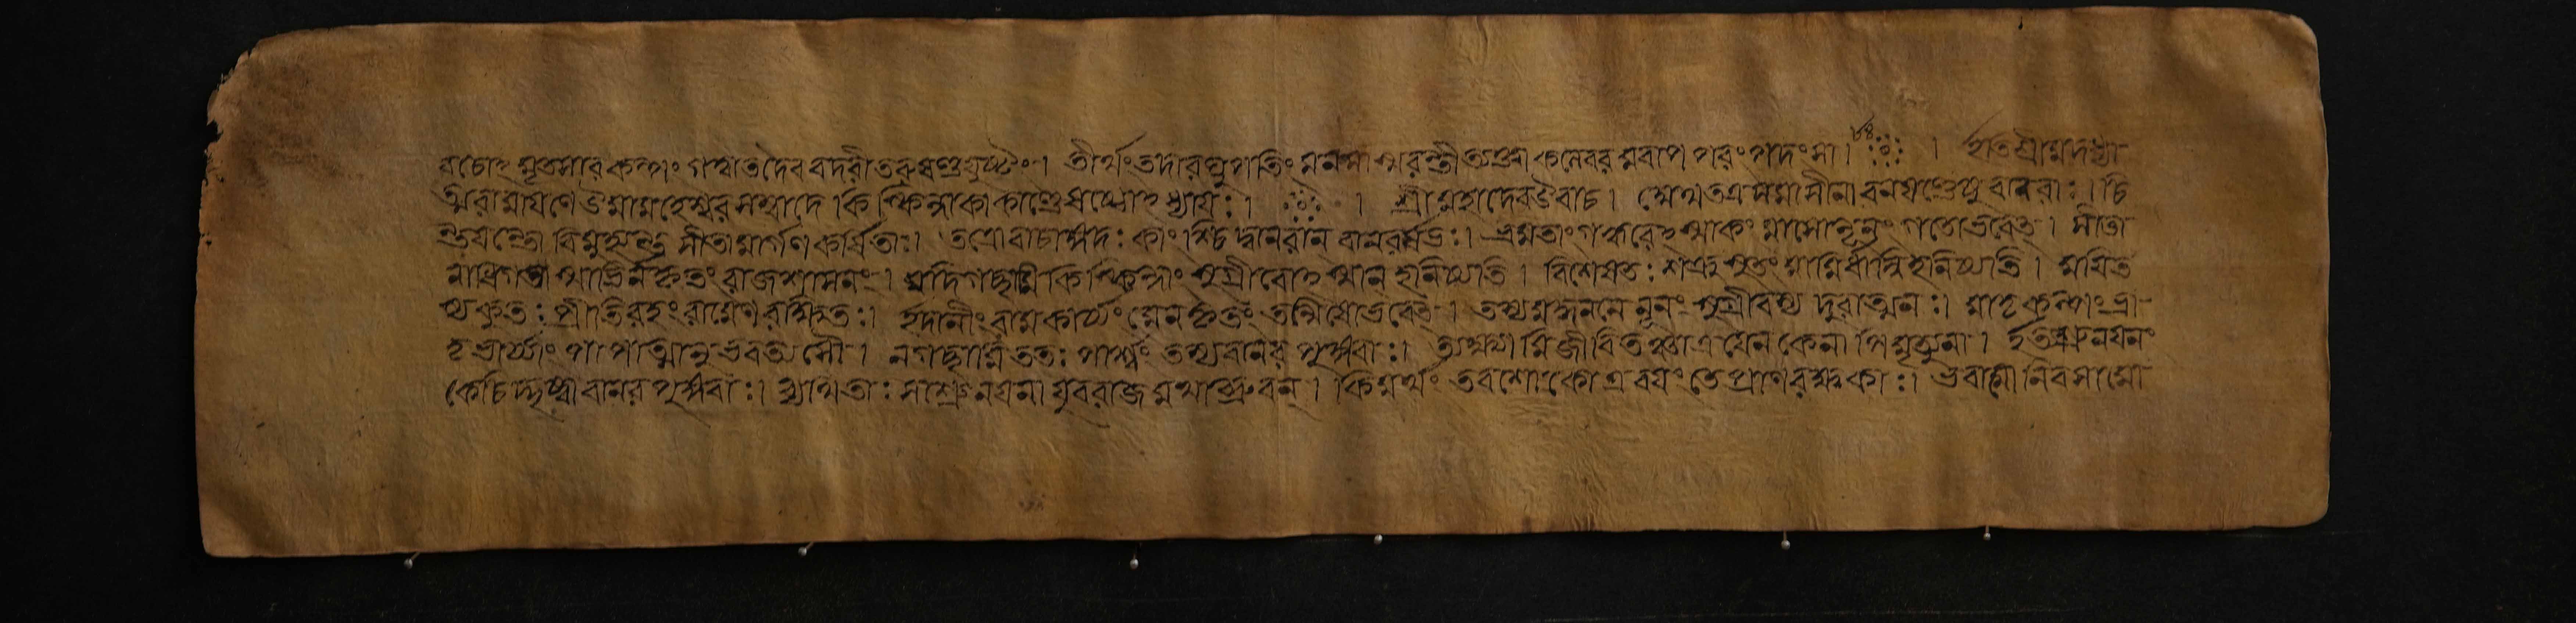 বচোঽমৃতসারকল্পং গত্বাতদৈববদরীতরুষণ্ডযুষ্টং। তীর্থংতদারঘুপতিং মনসাস্মরন্তীত্যক্ত্বাকলেবরমবাপ পরংপদংসা। ৮৪ । ইতিশ্রীমদধ্যা
ত্মরামাযণে উমামহেশ্বরসম্বাদে কিষ্কিন্ধাকাকাণ্ডেষষ্ঠোঽধ্যাযঃ। । শ্রীমহাদেবউবাচ। অথতত্রসমাসীনা বনষণ্ডেষু বানরাঃ। চি
ন্তযন্তো বিমুহ্যন্ত সীতামার্গণকর্ষিতাঃ। তত্রোবাচাঙ্গদঃ কাংশ্চিদ্বানরান্ বানরর্ষভঃ। ভ্রমতাংগহ্বরেঽস্মাকং মাসোনূনং গতোভবেত্। সীতা
নাধিগতাস্মাভির্নকৃতং রাজশাসনং। যদিগচ্ছামকিষ্কিন্ধাং সুগ্রীবোঽস্মান্ হনিষ্যতি। বিশেষতঃ শত্রুসুতং মাংমিষান্নিহনিষ্যতি। মযিত
স্যকুতঃ প্রীতিরহংরামেণরক্ষিতঃ। ইদানীংরামকার্য্যংমেনকৃতং তন্মিষোভবেত্। তস্যমদ্ধননেনূনং সুগ্রীবস্য দুরাত্মনঃ। মাতৃকল্পাংভ্রা
তৃভার্য্যাং পাপাত্মানুভবত্যসৌ। নগচ্ছেযমতঃ পার্শ্বং তস্যবানরপুঙ্গবাঃ। ত্যক্ষ্যামিজীবিতঞ্চাত্রযেনকেনাপিমৃত্যুনা। ইত্যশ্রুনযনং
কেচিদ্দৃষ্ট্বাবানরপুঙ্গবাঃ। ব্যথিতাঃ সাশ্রুনযনা যুবরাজমথাব্রুবন্। কিমর্থং তবশোকোঽত্রবযংতেপ্রাণরক্ষকাঃ। ভবামোনিবসামো